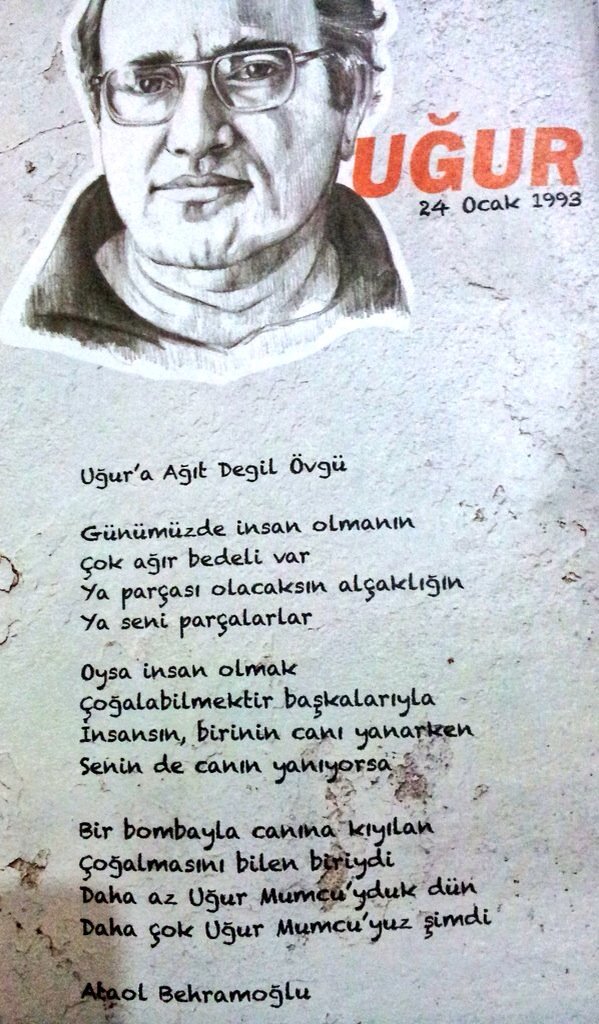 UĞUR
24 Ocak 1993
Uğur'a Ağıt Degil Övgü
Günümüzde insan olmanın
Çok ağır bedeli var
Ya parçası olacaksın alçaklığın
Ya seni parçalarlar
Oysa insan olmak
Çoğalabilmektir başkalarıyla
İnsansın, birinin canı yanarken
Senin de canın yanıyorsa
Bir bombayla canına kıyılan
Çoğalmasını bilen biriydi
Daha az Uğur Mumcu'yduk dün
Daha çok Uğur Mumcu'yuz şimdi
Ataol Behramoğlu